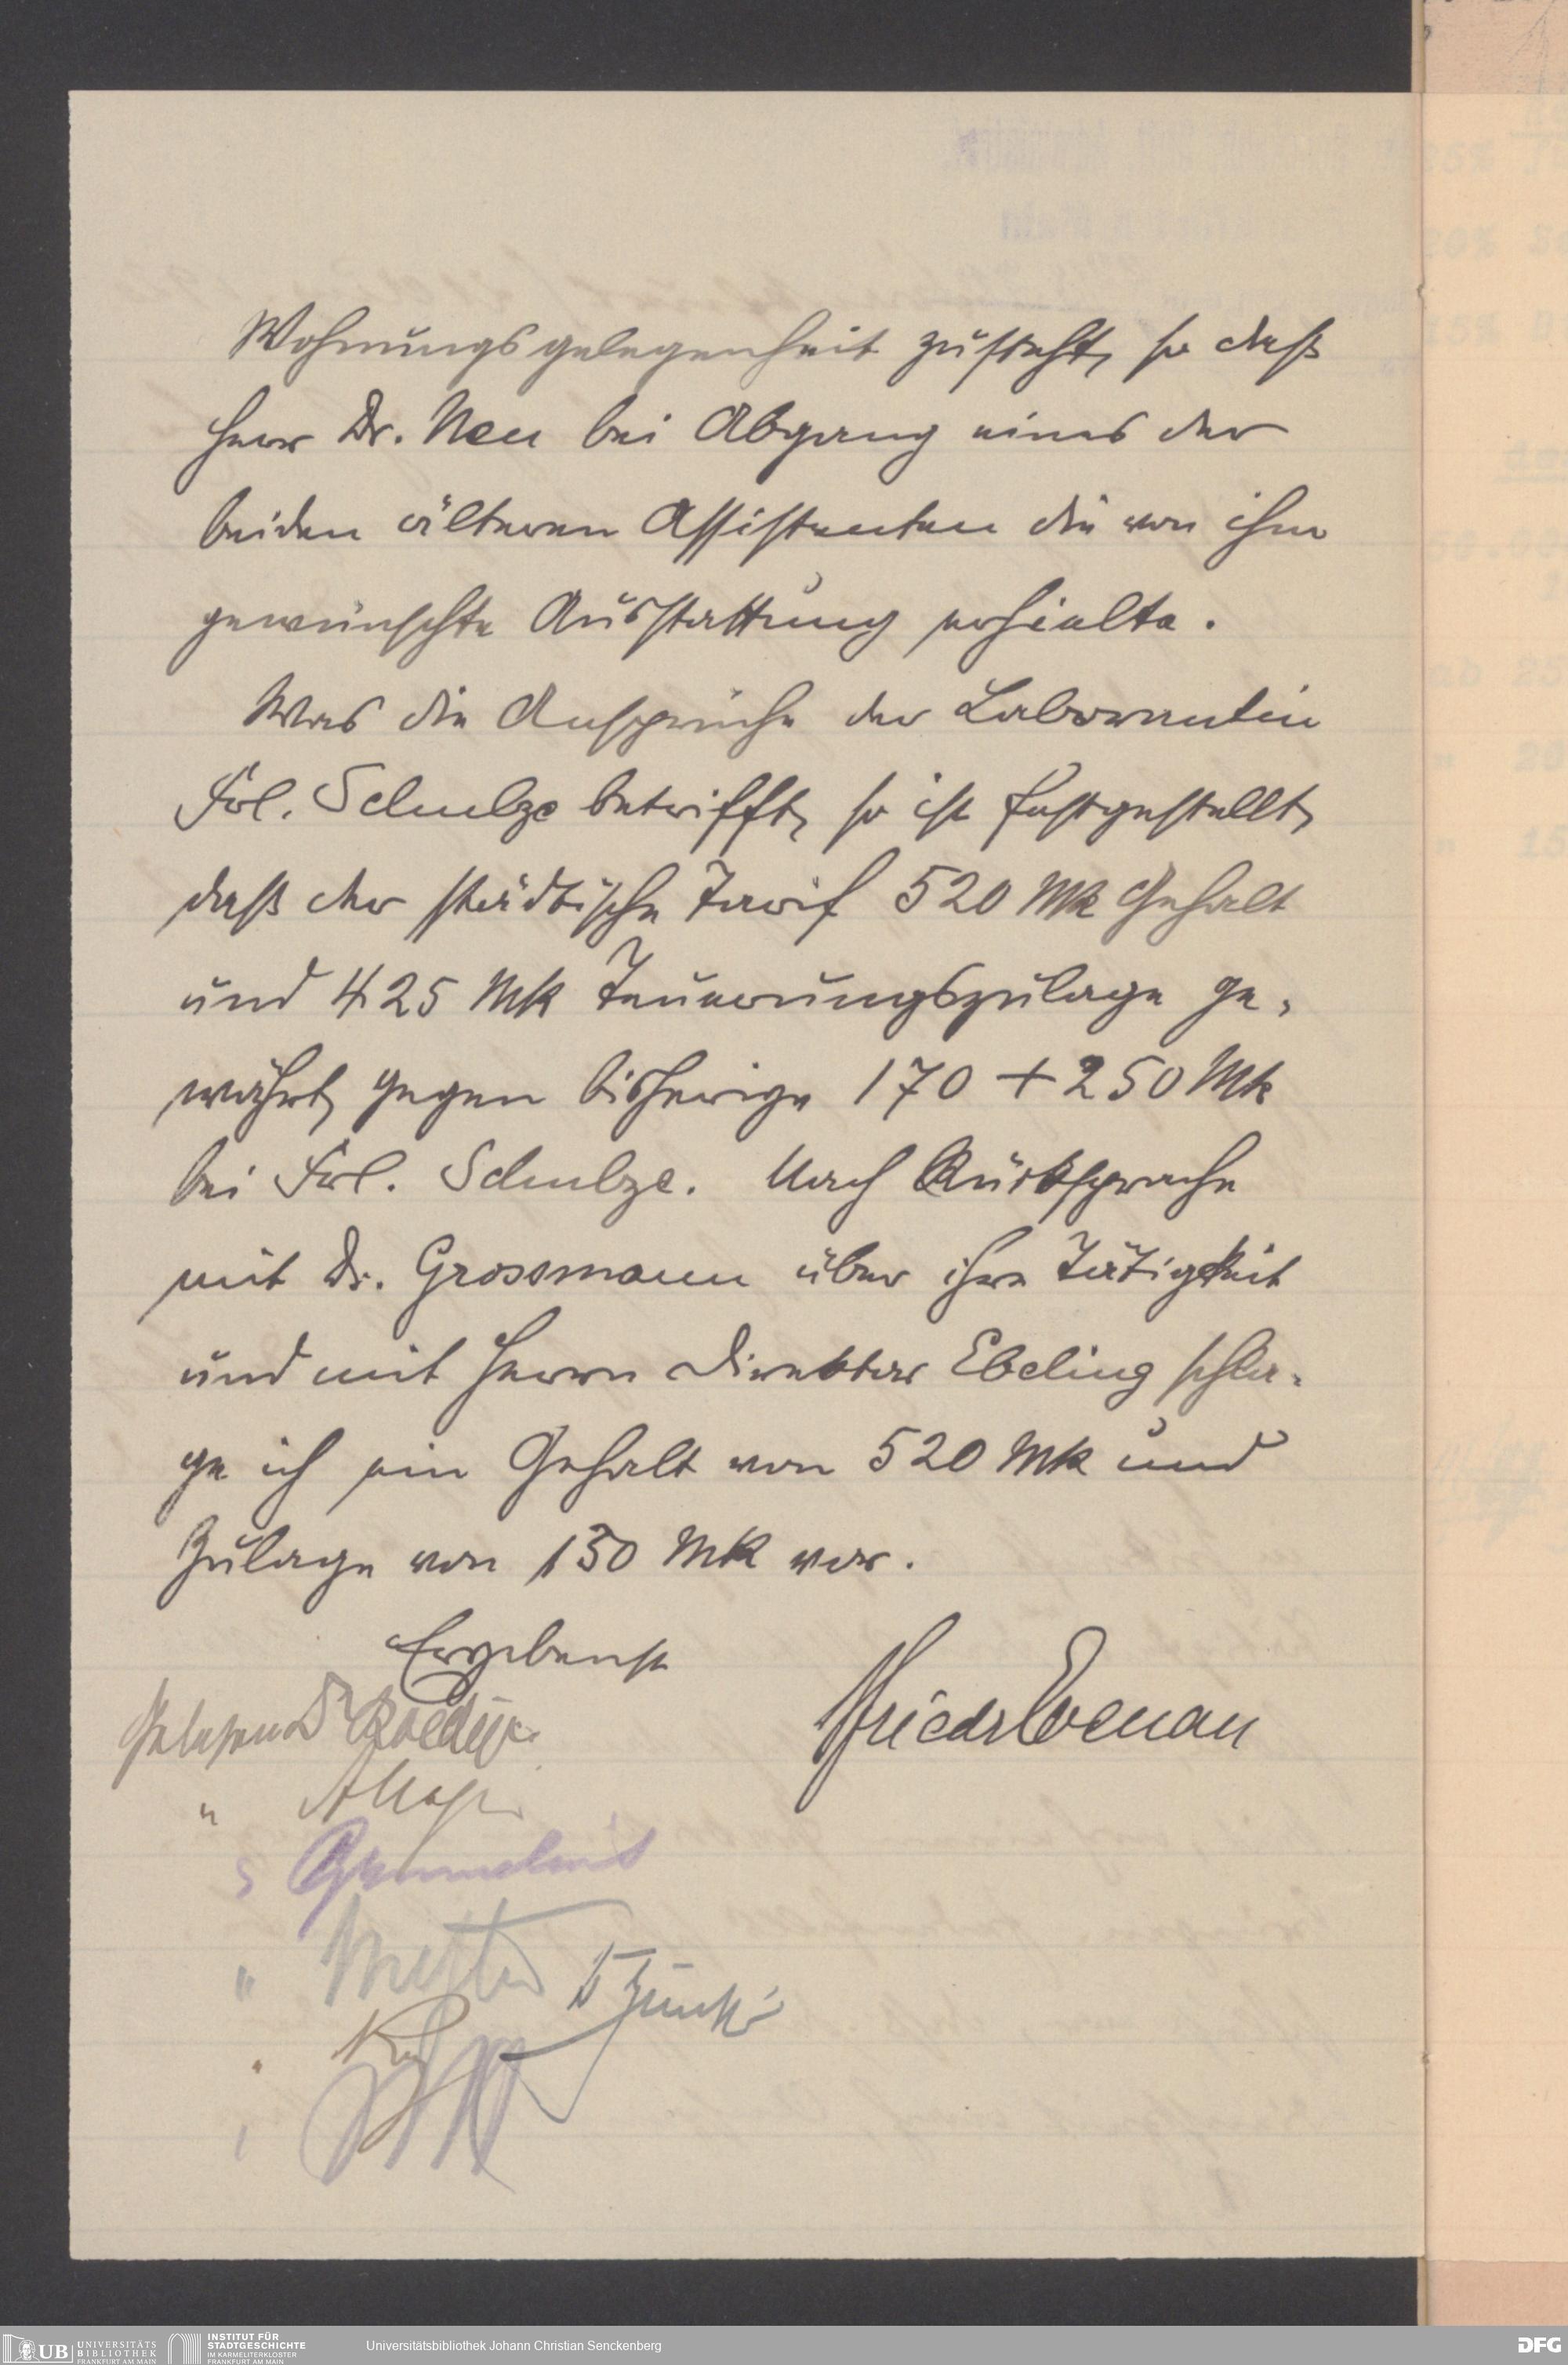 Wohnungsgelegenheit zusteht, so daß
Herr Dr. Neu bei Abgang eines der
beiden älteren Assistenten die von ihm
gewünschte Ausstattung erhielte.
Was die Ansprüche der Laborantin
Frl. Schulze betrifft, so ist festgestellt,
daß der städtische Tarif 520 Mk Gehalt
und 425 Mk Teuerungszulage ge-
währt, gegen bisherige 170 + 250 Mk
bei Frl. Schulze. Nach Rücksprache
mit Dr. Grossmann über ihre Tätigkeit
und mit Herrn Direktor Ebeling schla-
ge ich ein Gehalt von 520 Mk und
Zulage von 150 Mk vor.
Ergebenst
Gelesen Dr Roediger
"
"
UB UNIVERSITÄTS
BIBLIOTHEK
FRANKFURT AM MAIN
INSTITUT FÜR
STADTGESCHICHTE
IM KARMELITERKLOSTER
FRANKFURT AM MAIN
Universitätsbibliothek Johann Christian Senckenberg
DFG